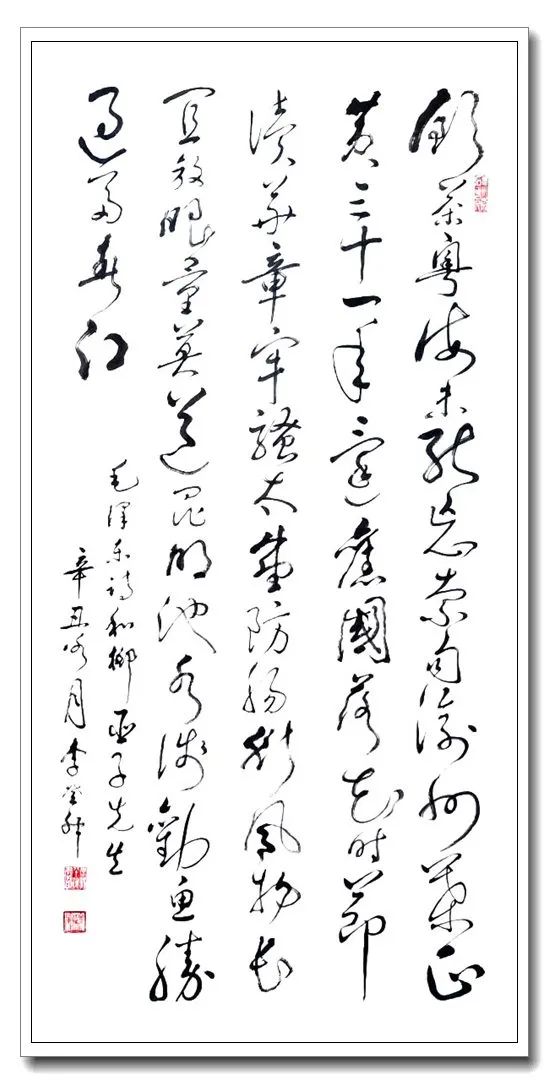 飲茶粵海未能忘索句渝州葉正
黃三十一年還舊國落花時節
讀華章牢騷太盛防腸斷風物長
宜放眼量莫道昆明池水淺觀魚勝
過富春江
毛澤東詩和柳亞子先生
辛丑月李登